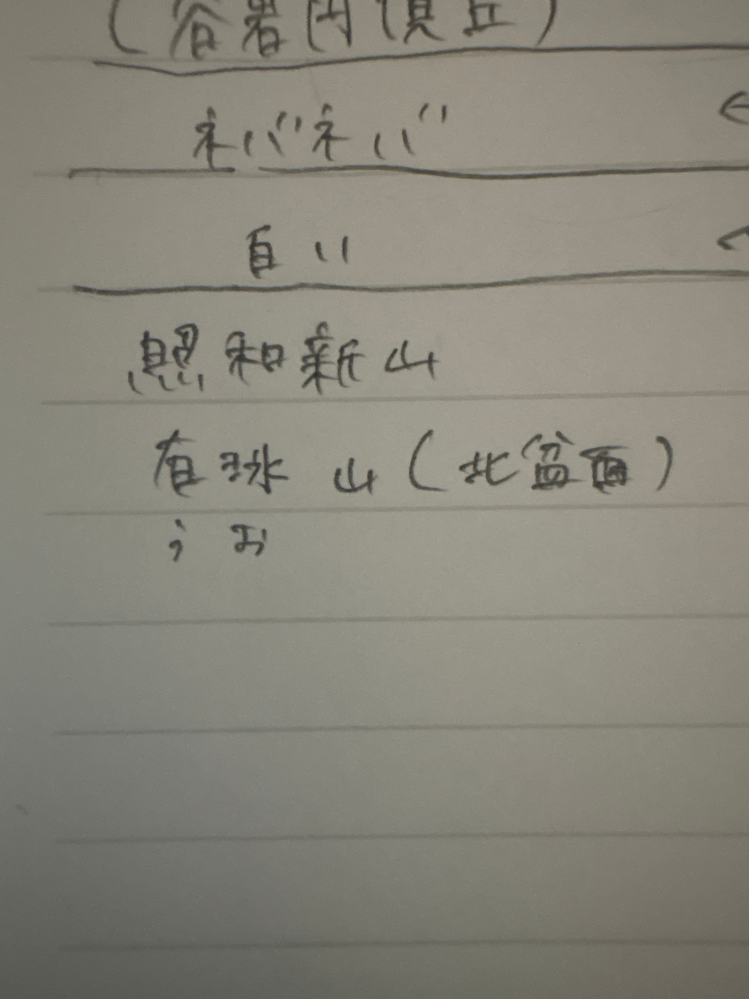 (谷岩円頂丘)
ネバネバ
白い
照和新山
有珠山(北盆面)
うお